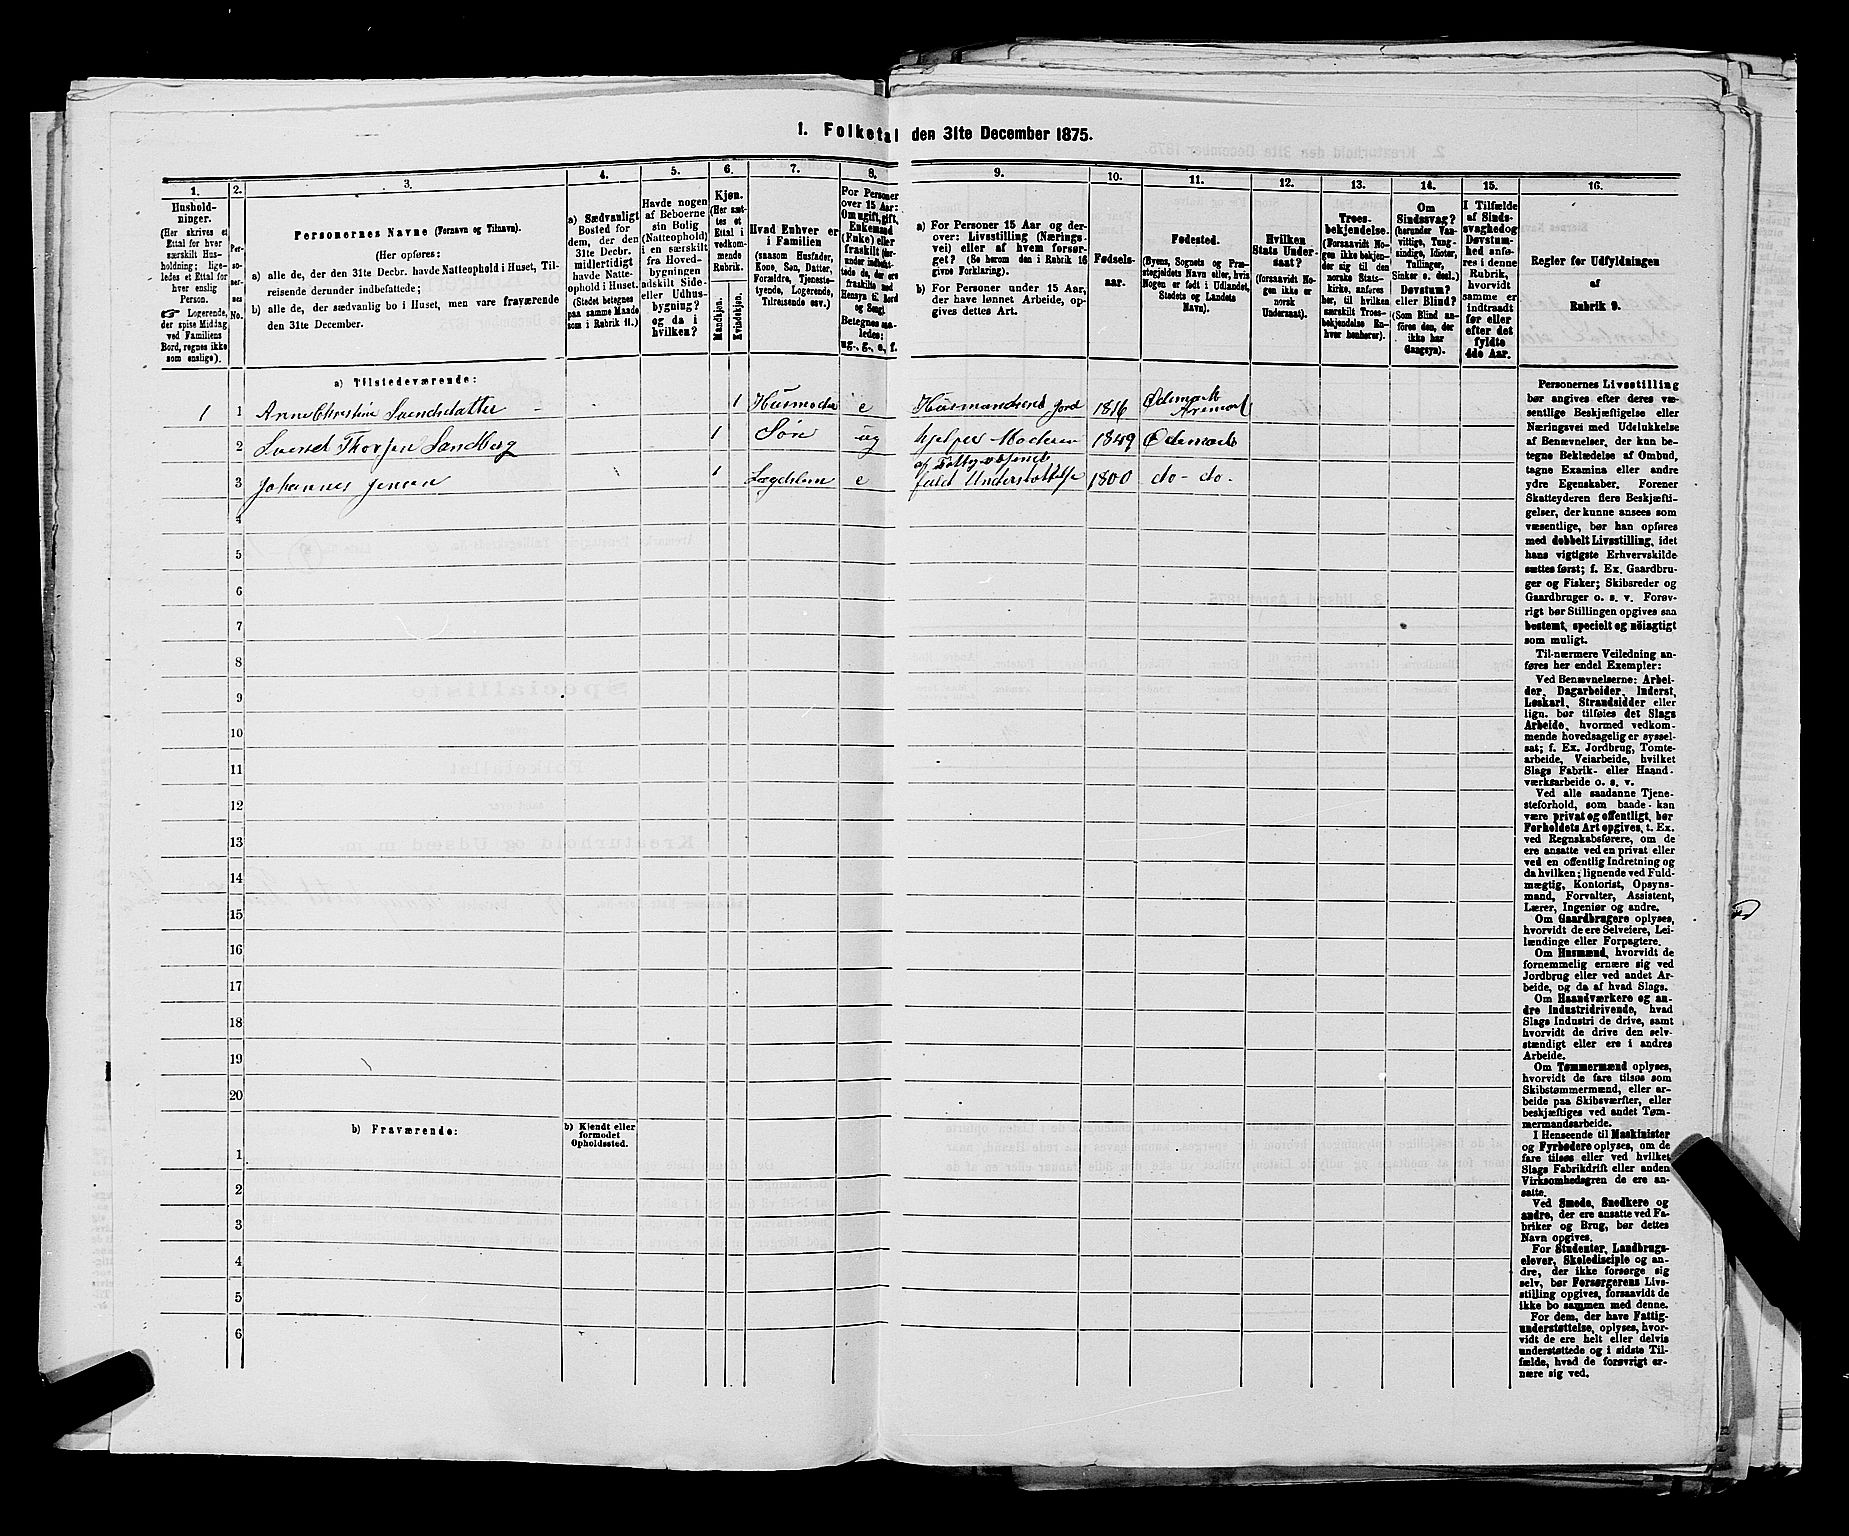 1. Folketal den 31te December 1875.
1.
Hushold-
ninger.
(Her skrives et
Ettal for hver
særskilt Hus-
holdning; lige-
ledes et Ettal for
hver enslig
Person.
☞ Logerende,
der spise Middag
ved Familiens
Bord, regnes ikke
som enslige).
2.
Per-
so-
ner-
nes
No.
3.
Personernes Navne (Fornavn og Tilnavn).
(Her opføres:
a) alle de, der den 31te Decbr. havde Natteophold i Huset, Til-
reisende derunder indbefattede;
b) alle de, der sædvanlig bo i Huset, men vare fraværende
den 31te December.
4.
a) Sædvanligt
Bosted for
dem, der den
31te Decbr.
midlertidigt
havde Natte-
ophold i Huset.
(Stedet betegnes
paa samme Maade
som i Rubrik 11.)
5.
Havde nogen
af Beboerne
sin Bolig
(Natteophold)
i en særskilt
fra Hoved-
bygningen
adskilt Side-
eller Udhus-
bygning?
og da i
hvilken?
6.
Kjøn.
(Her sæt-
tes et
Ettal i
vedkom-
mende
Rubrik.
Mandkjøn.
Kvindekjøn.
7.
Hvad Enhver er
i Familien
(saasom Husfader,
Kone, Søn, Datter,
Forældre, Tjeneste-
tyende, Logerende,
Tilreisende osv.)
8.
For Personer
over 15 Aar:
Om ugift, gift,
Enkemand
(Enke) eller
fraskilt
Betegnes saa-
ledes:
ug., g., e., f.
9.
a) For Personer 15 Aar og der-
over: Livsstilling (Nærings-
vei) eller af hvem forsør-
get? (Se herom den i Rubrik 16
givne Forklaring).
b) For Personer under 15 Aar,
der have lønnet Arbeide, op-
gives dettes Art.
10.
Fødsels-
aar.
11.
Fødested.
(Byens, Sognets og Præ-
stegjeldets Navn eller, hvis
Nogen er født i Udlandet,
Stedets og Landets
Navn).
12.
Hvilken
Stats Under-
saat?
(forsaavidt No-
gen ikke er
norsk
Undersaat).
13.
Troes-
bekjendelse.
(Forsaavidt No-
gen ikke bekjen-
der sig til den
norske Stats-
kirke, anføres
her, til hvilken
særskilt Troes-
bekjendelse En-
hver henhører).
14.
Om
Sindssvag?
(herunder Van-
vittige, Tung-
sindige, Idioter,
Tullinger,
Sinker o. desl.)
Døvstum?
eller Blind?
(Som Blind an-
føres den, der
ikke har
Gangsyn).
15.
I Tilfælde
af Sinds-
svaghed og
Døvstum-
hed anfø-
res i denne
Rubrik,
hvorvidt
samme er
indtraadt
før eller
efter det
fyldte
4de Aar.
16.
Regler for Udfyldningen
af
Rubrik 9.
a) Tilstedeværende:
1 1 Anne Christine Svendsdatter 1 Husmoder e Husmandsend Jord 1816 Ødemark Aremark
2 Svend Thorsen Sandberg 1 Søn ug hjelper Moderen 1849 Ødemark
3 Johannes Jensen 1 Lægdslem e fuld Understøttelse 1800 do - do -
4
5
6
7
8
9
10
11
12
13
14
15
16
17
18
19
20
b) Fraværende:
b) Kjendt eller
formodet
Opholdssted.
1
2
3
4
5
6
Personernes Livsstilling
bør angives efter deres væ-
sentlige Beskjæftigelse eller
Næringsvei med Udelukkelse
af Benævnelser, der kun be-
tegne Beklædelse af Ombud,
tagne Examina eller andre
ydre Egenskaber. Forener
Skatteyderen flere Beskjæfti-
gelser, der kunne ansees som
væsentlige, bør han opføres
med dobbelt Livsstilling, idet
hans vigtigste Erhvervskilde
sættes først; f. Ex. Gaardbru-
ger og Fisker; Skibsreder og
Gaardbruger o. s. v. Forøv-
rigt bør Stillingen opgives saa
bestemt, specielt og nöiagtigt
som muligt.
Til nærmere Veiledning an-
føres her endel Exempler:
Ved Benævnelserne: Arbei-
der, Dagarbeider, Inderst,
Løskarl, Strandsidder eller
lign. bør tilføies det Slags
Arbeide, hvormed vedkom-
mende hovedsagelig er syssel-
sat; f. Ex. Jordbrug, Tomte-
arbeide, Veiarbeide, hvilket
Slags Fabrik- eller Haand-
værksarbeide o. s. v.
Ved alle saadanne Tjene-
steforhold, som baade kan
være privat og offentligt, bør
Forholdets Art opgives, t. Ex.
ved Regnskabsførere, om de
ere ansatte ved en privat eller
ved en offentlig Indretning og
da hvilken; lignende ved Fuld-
mægtig, Kontorist, Opsyns-
mand, Forvalter, Assistent,
Lærer, Ingeniør og andre.
Om Gaardbrugere oplyses,
hvorvidt de ere Selveiere, Lei-
lændinge eller Forpagtere.
Om Husmænd, hvorvidt de
fornemmelig ernære sig ved
Jordbrug eller ved andet Ar-
beide, og da af hvad Slags.
Om Haandværkere og an-
dre Industridrivende, hvad
Slags Industri de drive, samt
hvorvidt de drive den selv-
stændigt eller ere i andres
Arbeide.
Om Tømmermænd oplyses,
hvorvidt de fare tilsøs som
Skibstømmermænd, eller ar-
beide paa Skibsværfter, eller
beskjæftiges ved andet Tøm-
mermandsarbeide.
I Henseende til Maskinister
og Fyrbødere oplyses, om de
fare tilsøs eller ved hvilket
Slags Fabrikdrift eller anden
Virksomhedsgren de ere an-
satte.
Ved Smede, Snedkere og
andre, der ere ansatte ved Fa-
briker og Brug, bør dettes
Navn opgives.
For Studenter, Landbrugs-
elever, Skoledisciple og an-
dre, der ikke forsørge sig
selv, bør Forsørgerens Livs-
stilling opgives, forsaavidt de
ikke bo sammen med denne.
For dem, der have Fattig-
understøttelse, oplyses, hvor-
vidt de ere helt eller delvis
understøttede og i sidste Til-
fælde, hvad de forøvrigt er-
nære sig ved.